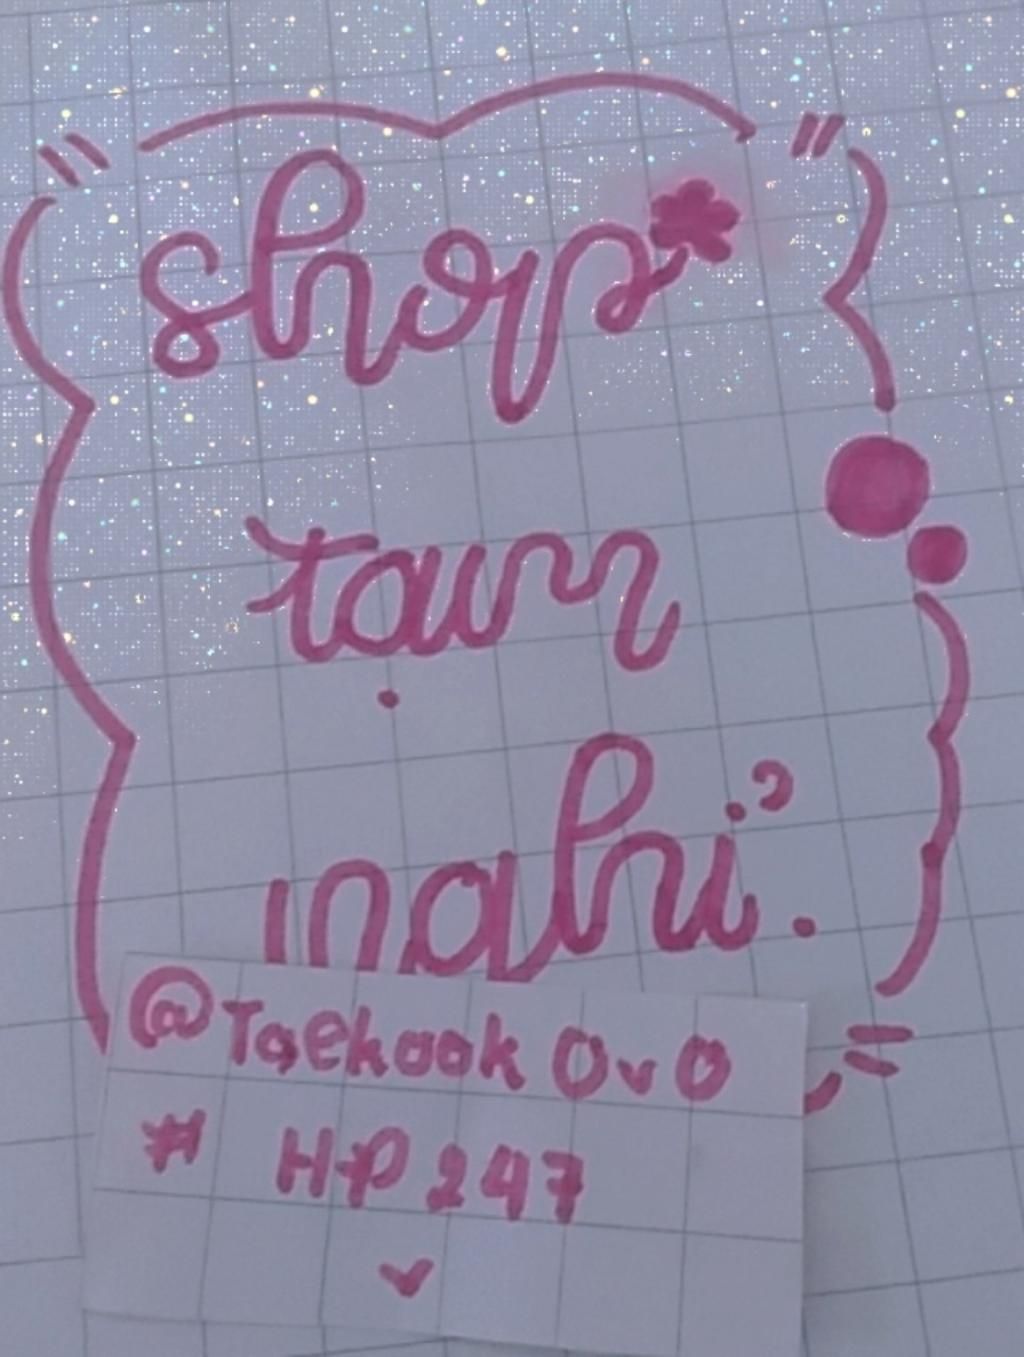 shop
tạm
nghỉ.
@Taekook OvO
# HP247